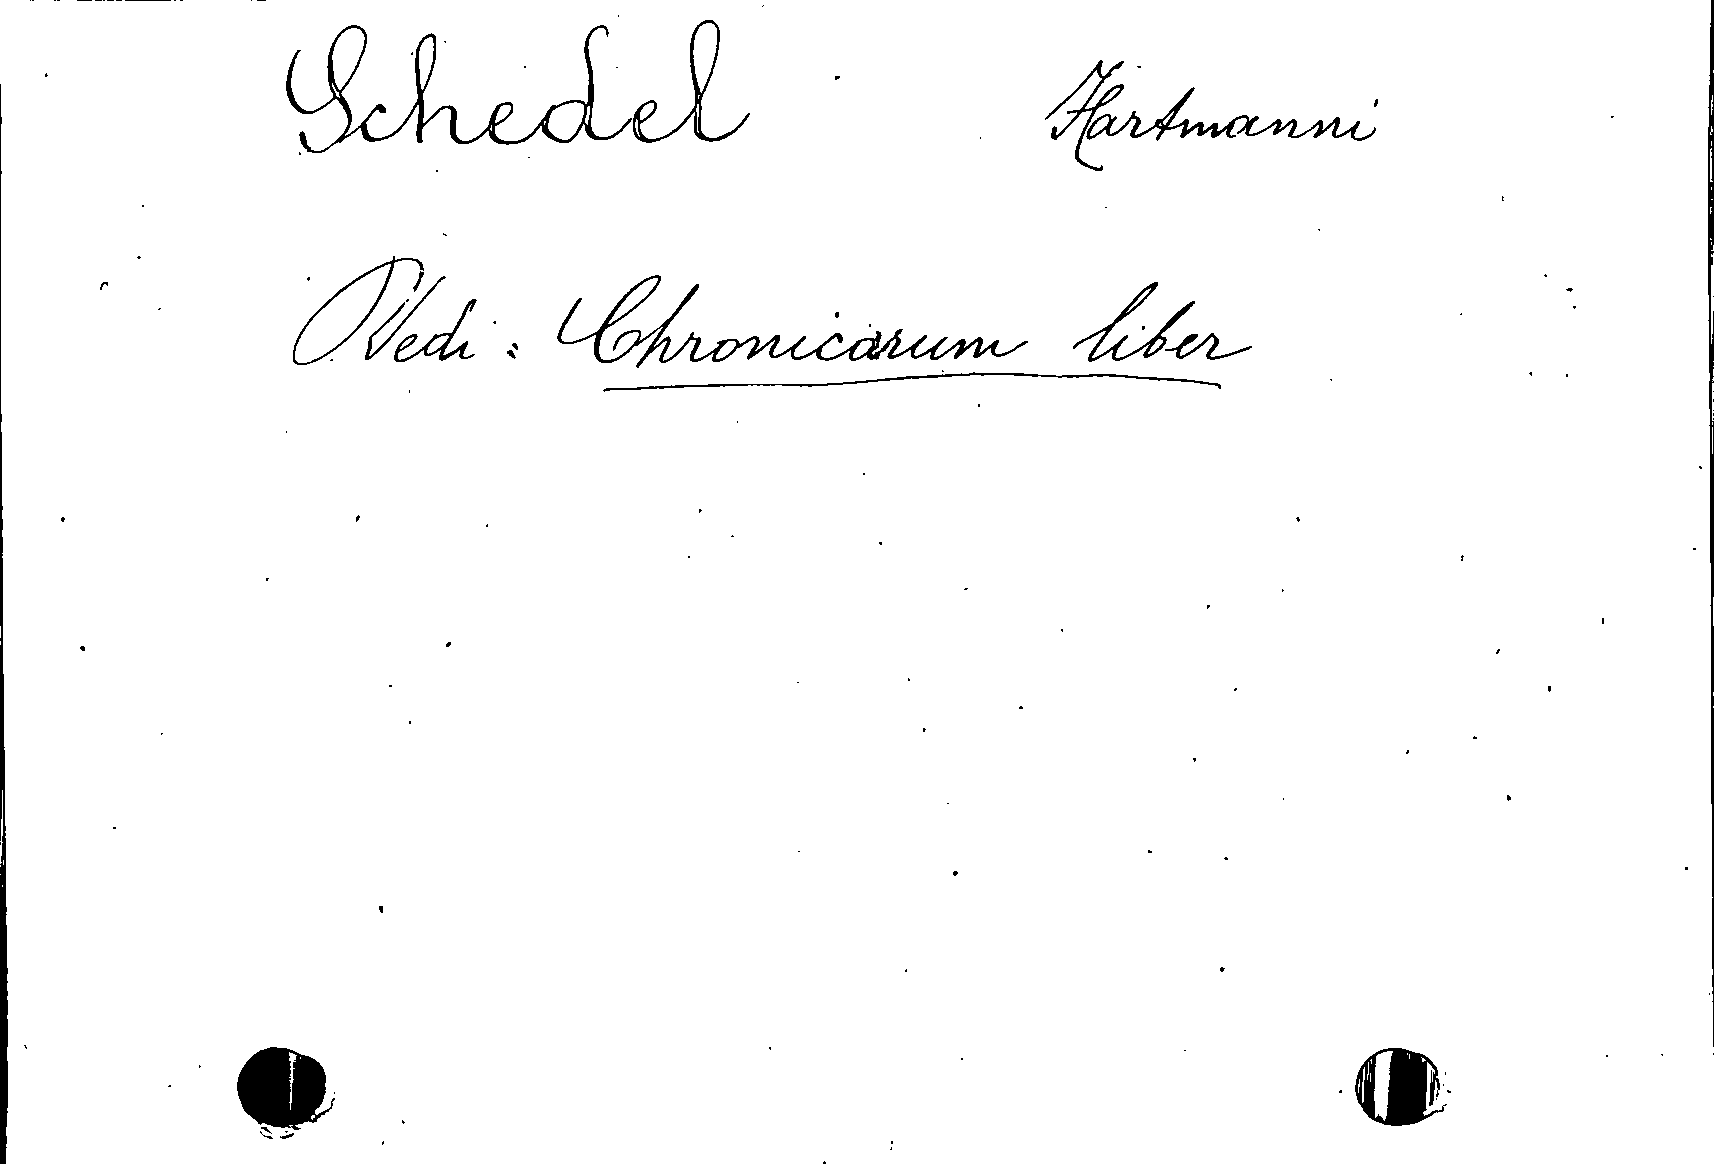 Schedel Hartmanni
Vedi: Chronicarum liber